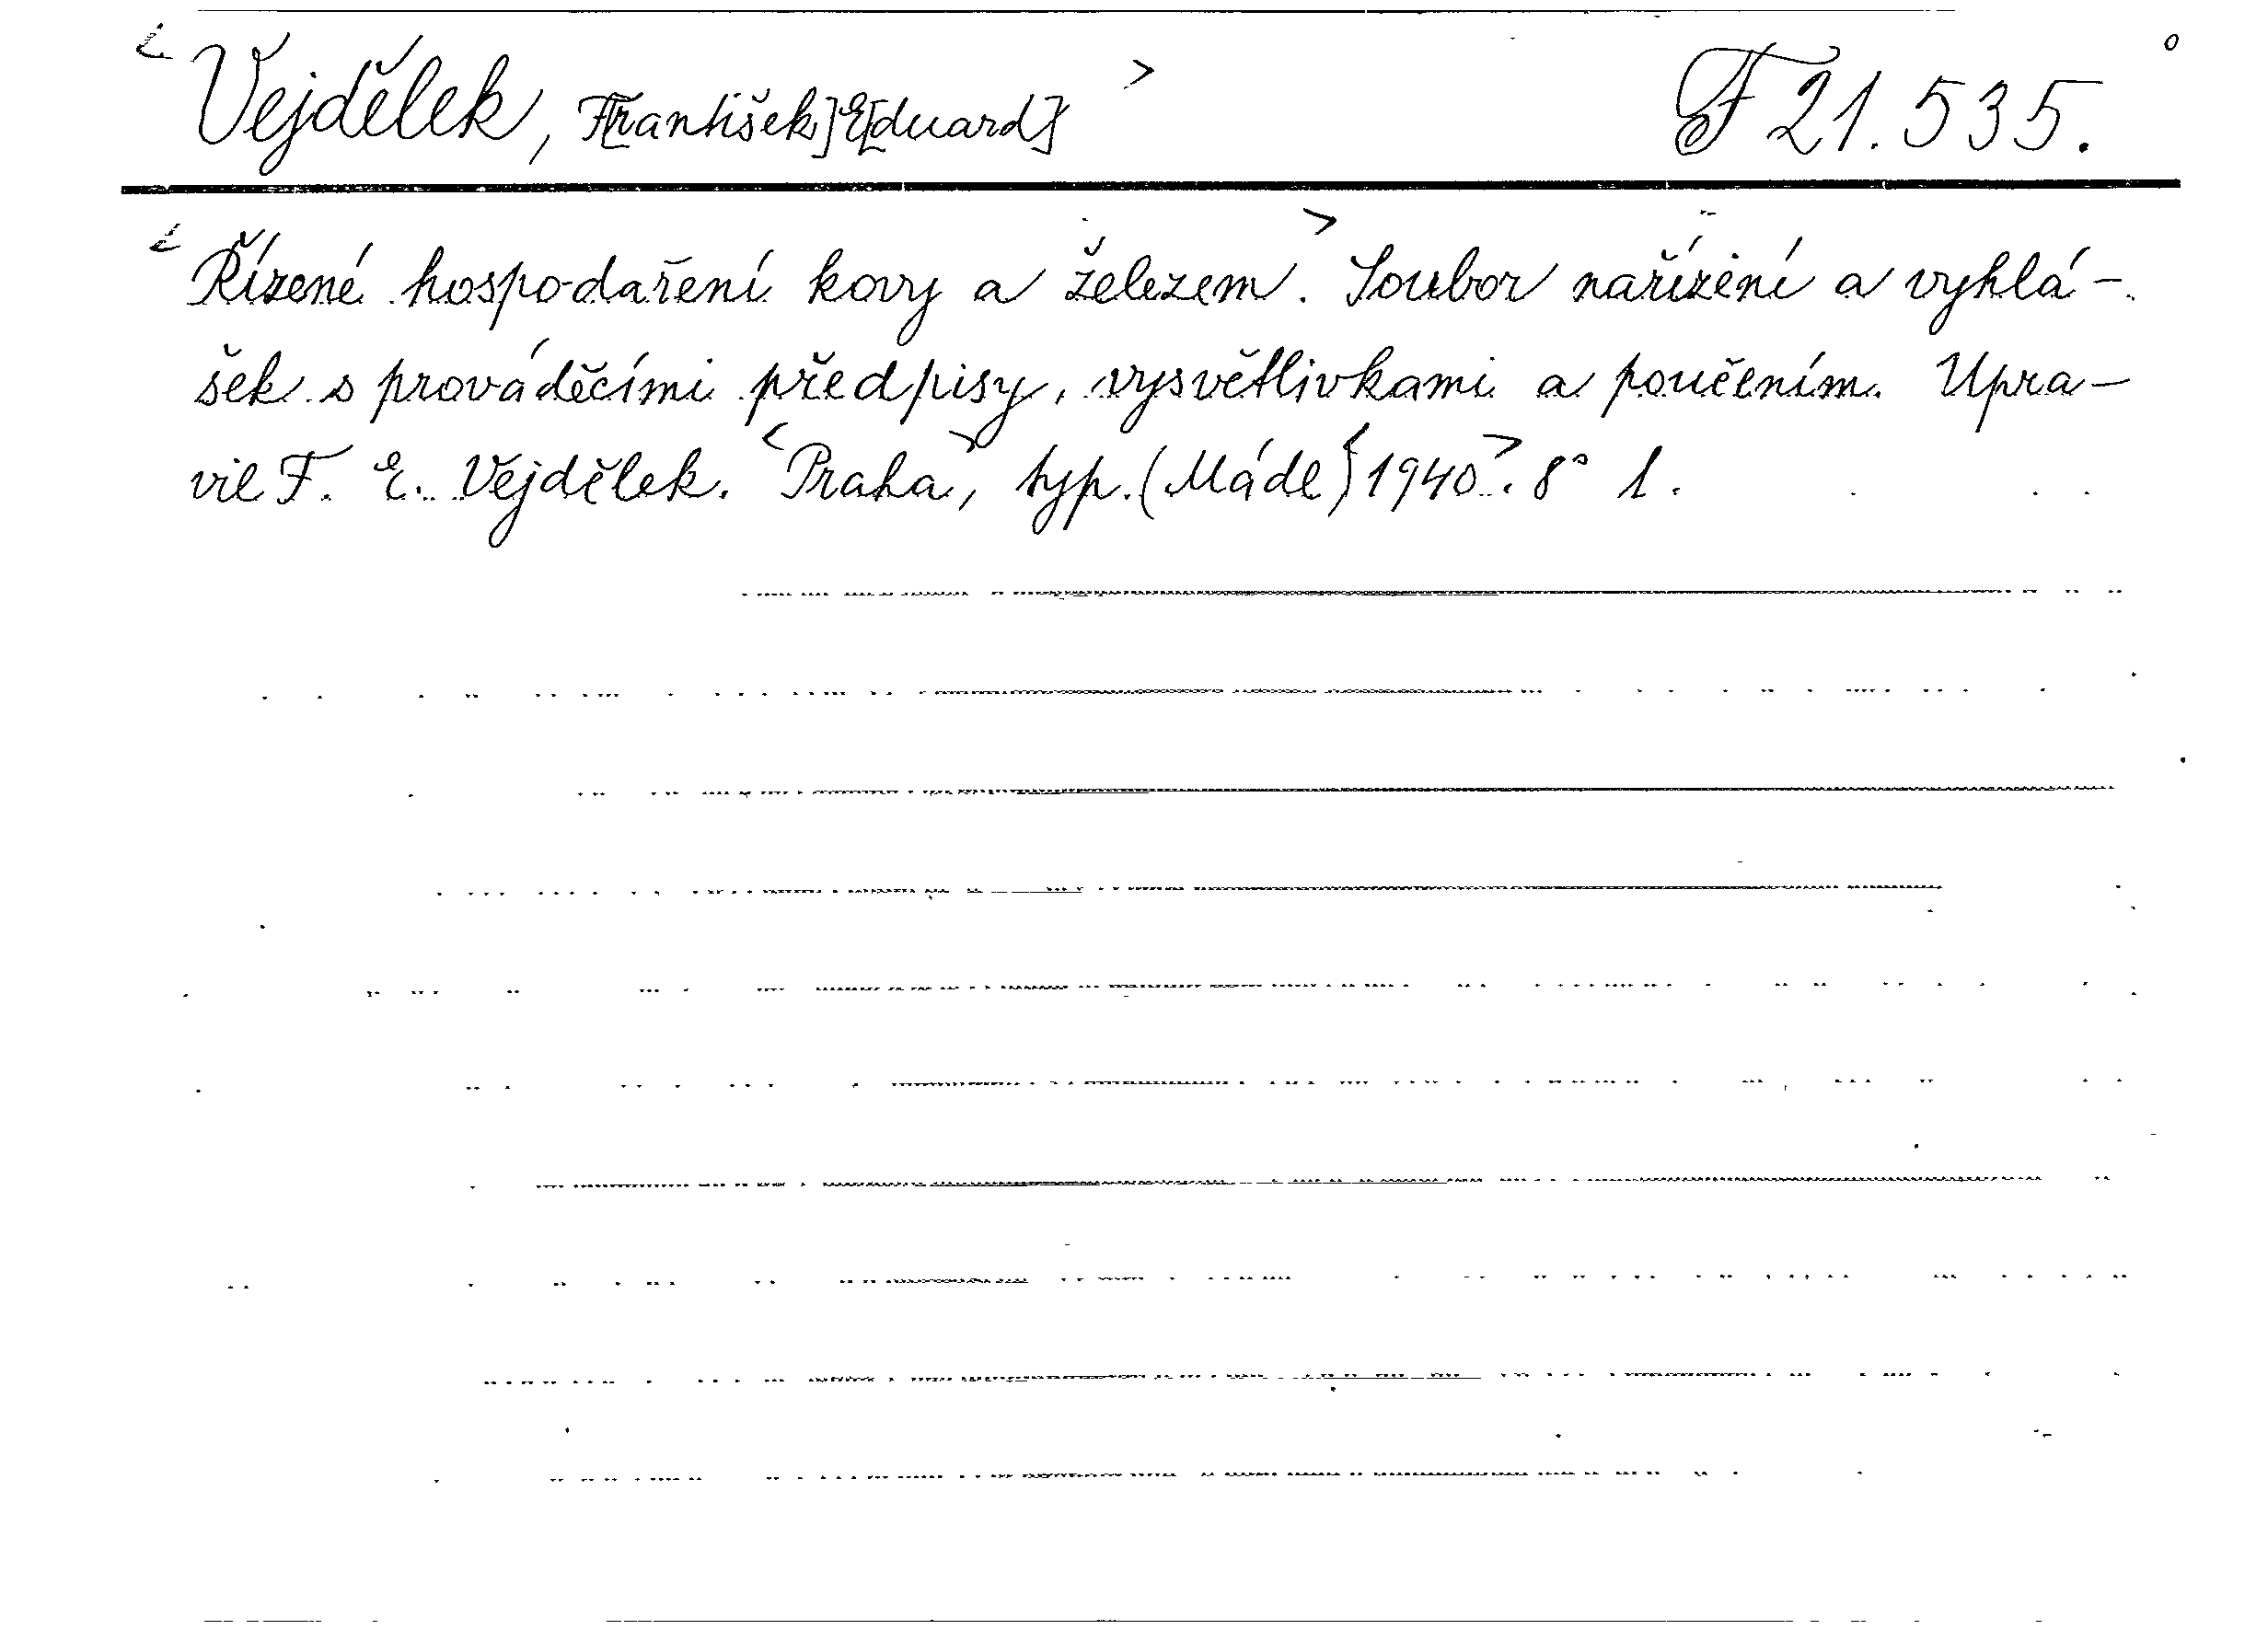 Vejdělek, F[rantišek] E[duard] F 21.535.
Řízené hospodaření kovy a železem. Soubor nařízení a vyhlá-
šek s prováděcími předpisy, vysvětlivkami a poučením. Upra-
vil F. E. Vejdělek. Praha, typ. (Mádl) 1940. 8° 1.